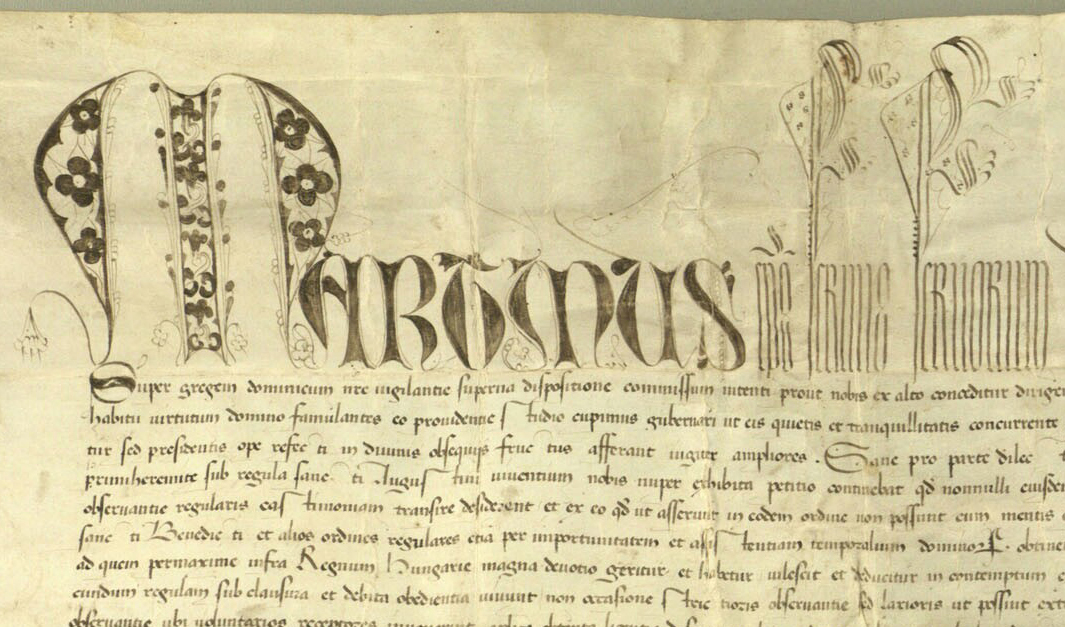 Martinus ep̄s servus servorum
Super gregem dominicum nr̄e vigilantie superna dispositione commissum intenti prout nobis ex alto conceditur dirigen
habitu virtutum domino famulantes eo providentie studio cupimus gubernari ut eis quietis et tranquillitatis concurrente
tur sed presidentis ope refecti in divinis obsequijs fructus afferant iugiter ampliores. Sane pro parte dilec
primiheremite sub regula sancti Augustini viventium nobis nuper exhibita petitio continebat qd̄ nonnulli eiusdem
observantie regularis castimoniam transire desiderent et ex eo qd̄ ut asserunt in eodem ordine non possunt cum mentis
sancti Benedicti et alios ordines regulares etiā per importunitatem et assistentiam temporalium dominorꝝ obtine
ad quem permaxime infra Regnum Hungarie magna devotio geritur et habetur vilescit et deducitur in contemptum
eiusdem regulam sub clausura et debita obedientia vivunt non occasione strictioris observantie sed laxioris ut possint
observantie ubi voluntarios receptores